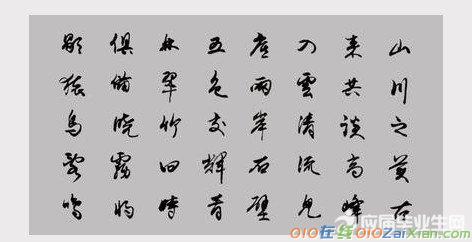 山川之美古
来共谈高峰
入云清流见
底两岸石壁
五色交辉青
林翠竹四时
俱备晓雾将
歇猿鸟乱鸣
应届毕业生网
O1O在线 O1OZaiXian.com